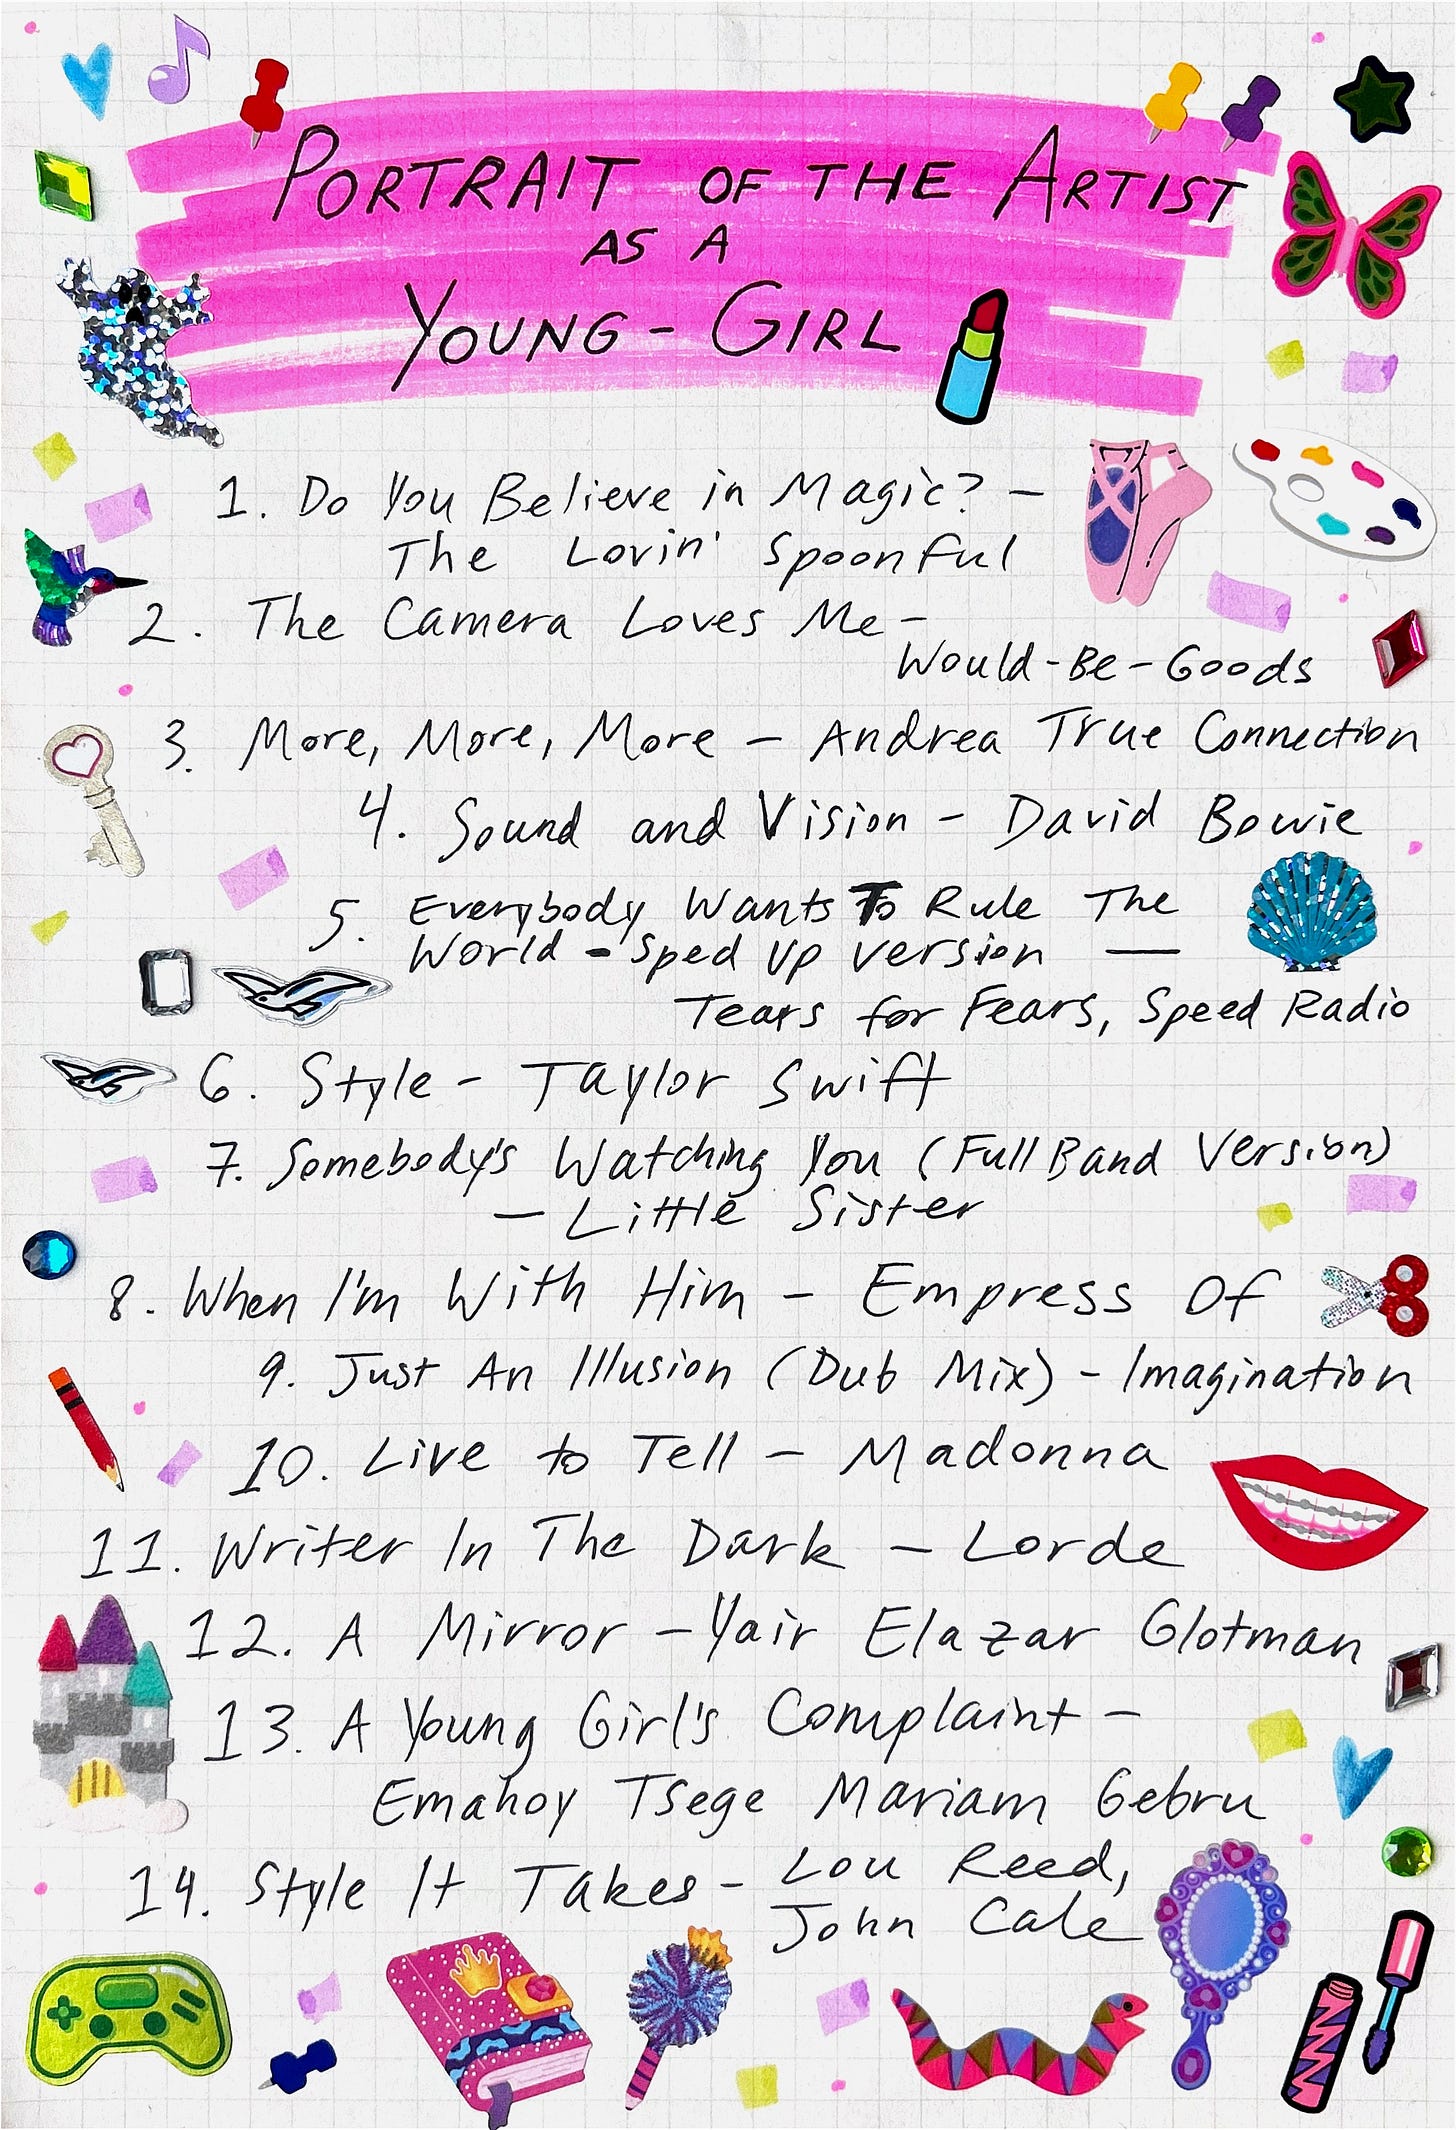 PORTRAIT OF THE ARTIST
AS A
YOUNG-GIRL
1. Do You Believe in Magic? —
The Lovin' Spoonful
2. The Camera Loves Me —
Would-Be-Goods
3. More, More, More — Andrea True Connection
4. Sound and Vision — David Bowie
5. Everybody Wants To Rule The
World - Sped Up Version —
Tears for Fears, Speed Radio
6. Style - Taylor Swift
7. Somebody's Watching You (Full Band Version)
— Little Sister
8. When I'm With Him — Empress Of
9. Just An Illusion (Dub Mix) - Imagination
10. Live to Tell — Madonna
11. Writer In The Dark — Lorde
12. A Mirror — Yair Elazar Glotman
13. A Young Girl's Complaint —
Emahoy Tsege Mariam Gebru
14. Style It Takes - Lou Reed,
John Cale